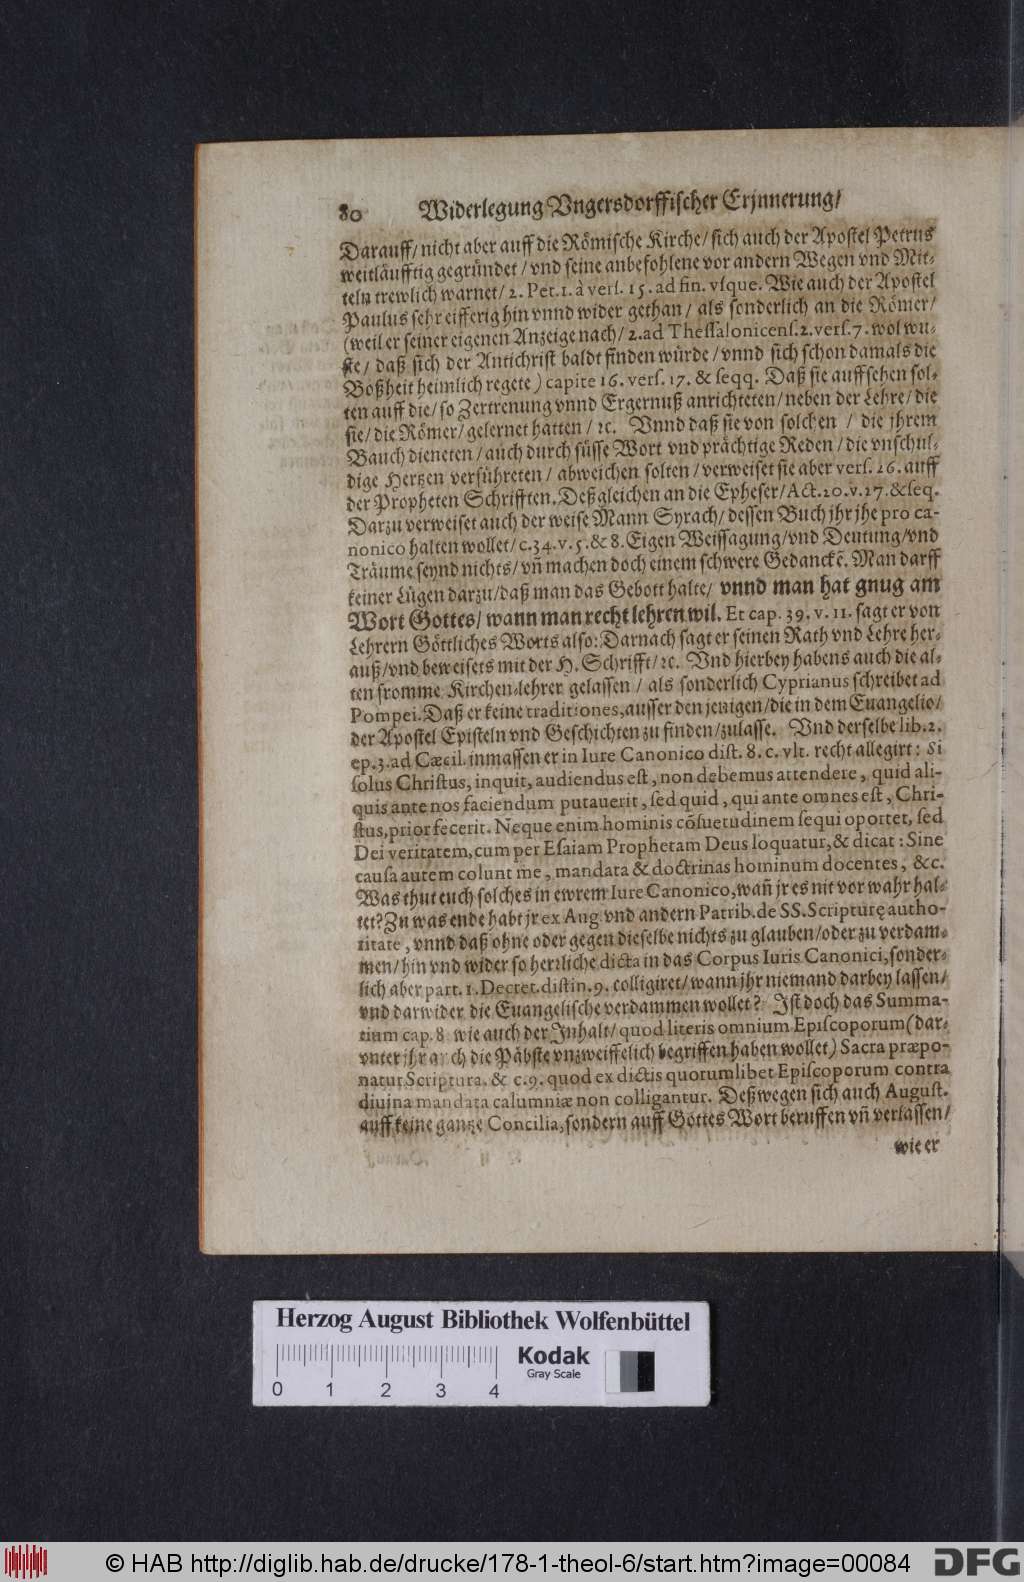 80 Widerlegung Vngersdorffischer Erjnnerung/
Darauff/ nicht aber auff die Römische Kirche/ sich auch der Apostel Petrus
weitläufftig gegründet / vnd seine anbefohlene vor andern Wegen vnd Mit-
teln trewlich warnet/ 2. Pet. 1. à vers. 15. ad fin. vsque. Wie auch der Apostel
Paulus sehr eifferig hin vnnd wider gethan / als sonderlich an die Römer/
(weil er seiner eigenen Anzeige nach/ 2. ad Thessalonicens. 2. vers. 7. wol wu-
ste/ daß sich der Antichrist baldt finden würde/ vnnd sich schon damals die
Boßheit heimlich regete) capite 16. vers. 17. & seqq. Daß sie auffsehen sol-
ten auff die/ so Zertrenung vnnd Ergernuß anrichteten/ neben der Lehre/ die
sie/ die Römer/ gelernet hatten / ꝛc. Vnnd daß sie von solchen / die jhrem
Bauch dieneten / auch durch süsse Wort vnd prächtige Reden / die vnschul-
dige Hertzen verführeten/ abweichen solten/ verweiset sie aber vers. 26. auff
der Propheten Schrifften. Deßgleichen an die Epheser/ Act. 20. v. 27. & seq.
Darzu verweiset auch der weise Mann Syrach/ dessen Buch jhr jhe pro ca-
nonico halten wollet/ c. 34. v. 5. & 8. Eigen Weissagung/ vnd Deutung/ vnd
Träume seynd nichts/ vñ machen doch einem schwere Gedanckẽ. Man darff
keiner Lügen darzu/ daß man das Gebott halte/ vnnd man hat gnug am
Wort Gottes/ wann man recht lehren wil. Et cap. 39. v. 11. sagt er von
Lehrern Göttliches Worts also: Darnach sagt er seinen Rath vnd Lehre her-
auß/ vnd beweisets mit der H. Schrifft/ ꝛc. Vnd hierbey habens auch die al-
ten fromme Kirchen-lehrer gelassen / als sonderlich Cyprianus schreibet ad
Pompei. Daß er keine traditiones, ausser den jenigen/ die in dem Euangelio/
der Apostel Episteln vnd Geschichten zu finden/ zulasse. Vnd derselbe lib. 2.
ep. 3. ad Cæcil. inmassen er in Iure Canonico dist. 8. c. vlt. recht allegirt: Si
solus Christus, inquit, audiendus est, non debemus attendere, quid ali-
quis ante nos faciendum putauerit, sed quid, qui ante omnes est, Chri-
stus, prior fecerit. Neque enim hominis cõsuetudinem sequi oportet, sed
Dei veritatem, cum per Esaiam Prophetam Deus loquatur, & dicat: Sine
causa autem colunt me, mandata & doctrinas hominum docentes, &c.
Was thut euch solches in ewrem Iure Canonico, wañ jr es nit vor wahr hal-
tet? Zu was ende habt jr ex Aug. vnd andern Patrib. de SS. Scripturę autho-
ritate, vnnd daß ohne oder gegen dieselbe nichts zu glauben/ oder zu verdam-
men/ hin vnd wider so herrliche dicta in das Corpus Iuris Canonici, sonder-
lich aber part. 1. Decret. distin. 9. colligiret/ wann jhr niemand darbey lassen/
vnd darwider die Euangelische verdammen wollet? Ist doch das Summa-
rium cap. 8 wie auch der Inhalt/ quod literis omnium Episcoporum (dar-
vnter jhr auch die Päbste vnzweiffelich begriffen haben wollet) Sacra præpo-
natur Scriptura. & c. 9. quod ex dictis quorumlibet Episcoporum contra
diuina mandata calumniæ non colligantur. Deßwegen sich auch August.
auff keine gantze Concilia, sondern auff Gottes Wort beruffen vñ verlassen/
wie er
Herzog August Bibliothek Wolfenbüttel
Kodak
Gray Scale
0 1 2 3 4
© HAB http://diglib.hab.de/drucke/178-1-theol-6/start.htm?image=00084
DFG